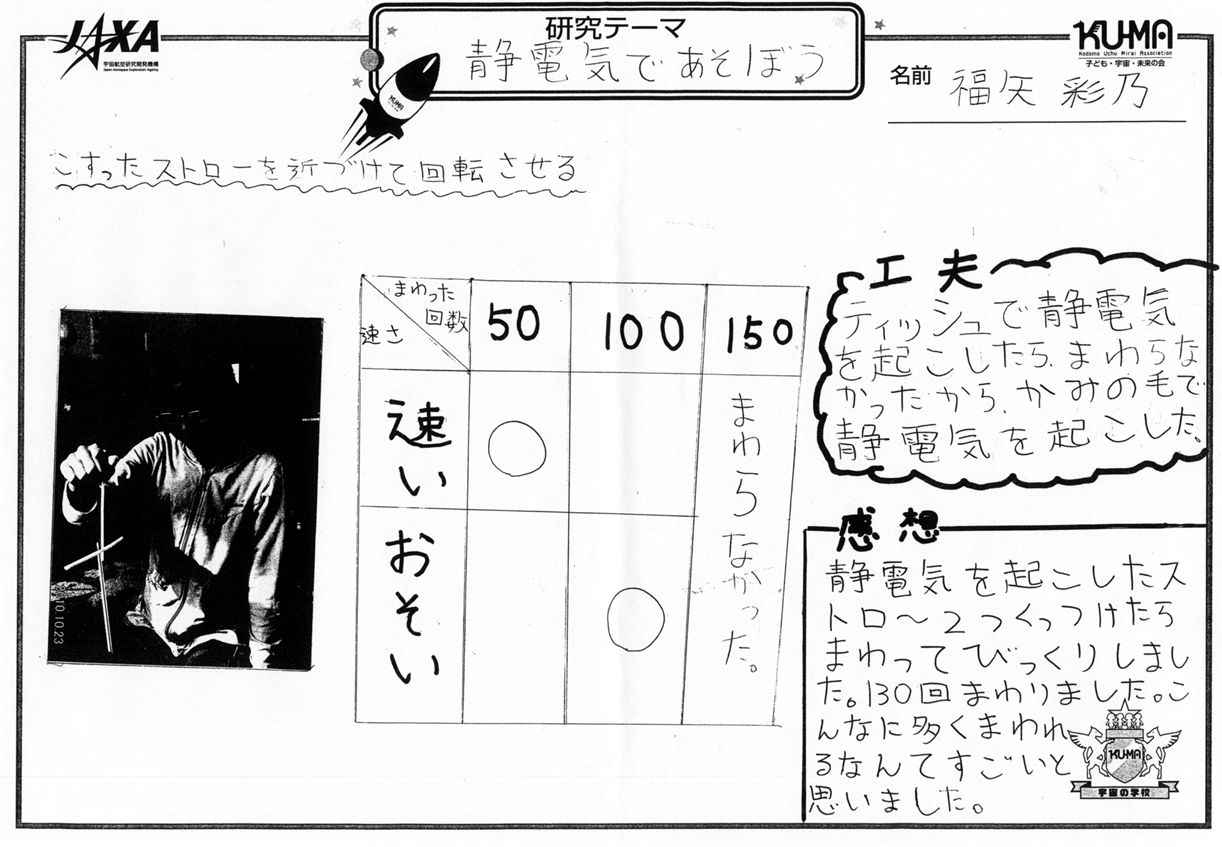 JAXA
宇宙航空研究開発機構
Japan Aerospace Exploration Agency
研究テーマ
静電気であそぼう
KU-MA
Kodomo Uchu Mirai Association
子ども・宇宙・未来の会
名前 福矢 彩乃
KU-MA
こすったストローを近づけて回転させる
まわった
回数
速さ
50
100
150
速い
○
おそい
○
まわらなかった。
10.10.23
工夫
ティッシュで静電気
を起こしたら、まわらな
かったから、かみの毛で
静電気を起こした。
感想
静電気を起こしたス
トロ〜2つくっつけたら
まわってびっくりしまし
た。130回まわりました。こ
んなに多くまわれ
るなんてすごいと
思いました。
KU-MA
宇宙の学校